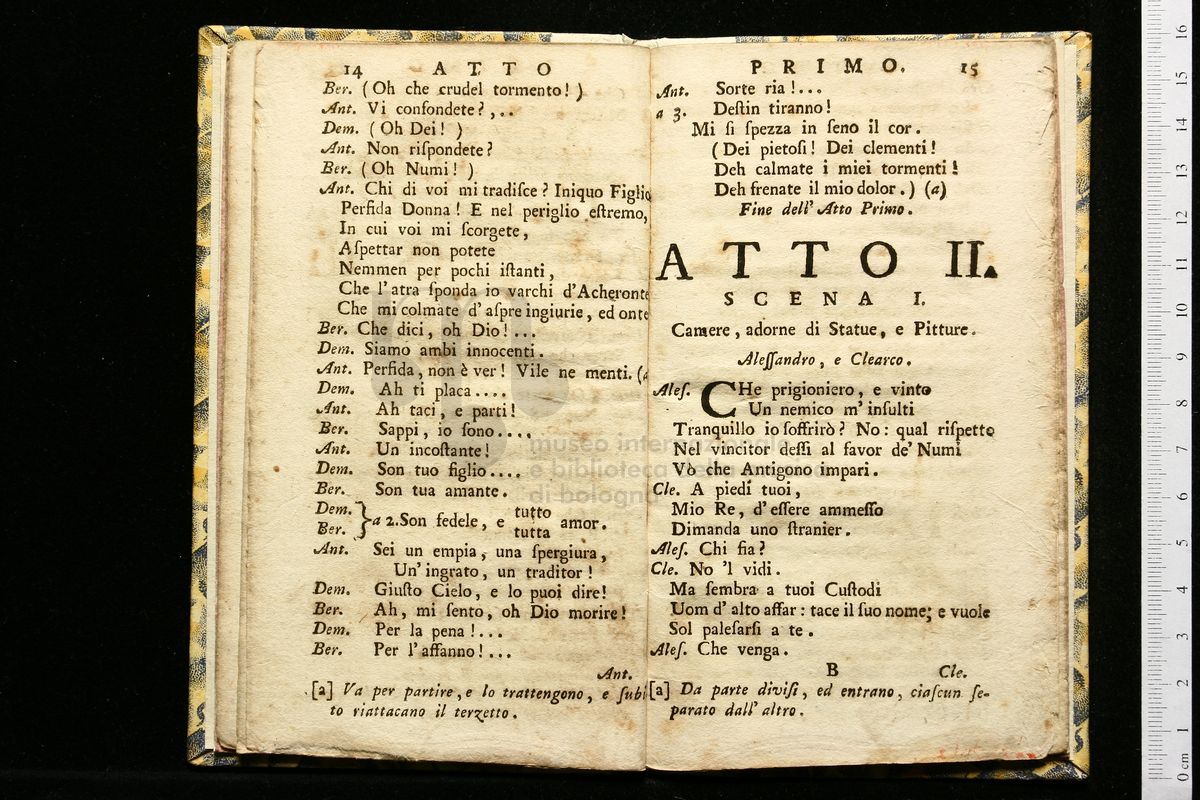 14 ATTO
Ber. (Oh che crudel tormento!)
Ant. Vi confondete?,..
Dem. (Oh Dei! )
Ant. Non riſpondete?
Ber. (Oh Numi! )
Ant. Chi di voi mi tradiſce? Iniquo Figlio
Perfida Donna! E nel periglio eſtremo,
In cui voi mi ſcorgete,
Aſpettar non potete
Nemmen per pochi iſtanti,
Che l'atra ſponda io varchi d'Acheronte
Che mi colmate d'aſpre ingiurie, ed onte
Ber. Che dici, oh Dio!...
Dem. Siamo ambi innocenti.
Ant. Perfida, non è ver! Vile ne menti. (a
Dem. Ah ti placa....
Ant. Ah taci, e parti!
Ber. Sappi, io ſono....
Ant. Un incoſtante!
Dem. Son tuo figlio....
Ber. Son tua amante.
Dem. } a 2. Son fedele, e tutto amor.
Ber. } tutta
Ant. Sei un empia, una ſpergiura,
Un'ingrato, un traditor!
Dem. Giuſto Cielo, e lo puoi dire!
Ber. Ah, mi ſento, oh Dio morire!
Dem. Per la pena!...
Ber. Per l'affanno!...
Ant.
[a] Va per partire, e lo trattengono, e ſubi
to riattacano il terzetto.
PRIMO. 15
Ant. Sorte ria!...
a 3. Deſtin tiranno!
Mi ſi ſpezza in ſeno il cor.
(Dei pietoſi! Dei clementi!
Deh calmate i miei tormenti!
Deh frenate il mio dolor.) (a)
Fine dell' Atto Primo.
ATTO II.
SCENA I.
Camere, adorne di Statue, e Pitture.
Aleſſandro, e Clearco.
Aleſ. CHe prigioniero, e vinto
Un nemico m'inſulti
Tranquillo io ſoffrirò? No: qual riſpetto
Nel vincitor deſſi al favor de' Numi
Vò che Antigono impari.
Cle. A piedi tuoi,
Mio Re, d'eſſere ammeſſo
Dimanda uno ſtranier.
Aleſ. Chi fia?
Cle. No 'l vidi.
Ma ſembra a tuoi Cuſtodi
Uom d'alto affar: tace il ſuo nome; e vuole
Sol paleſarſi a te.
Aleſ. Che venga.
B Cle.
[a] Da parte diviſi, ed entrano, ciaſcun ſe-
parato dall' altro.
museo internazionale
e biblioteca della
di bologna
0 cm 1 2 3 4 5 6 7 8 9 10 11 12 13 14 15 16